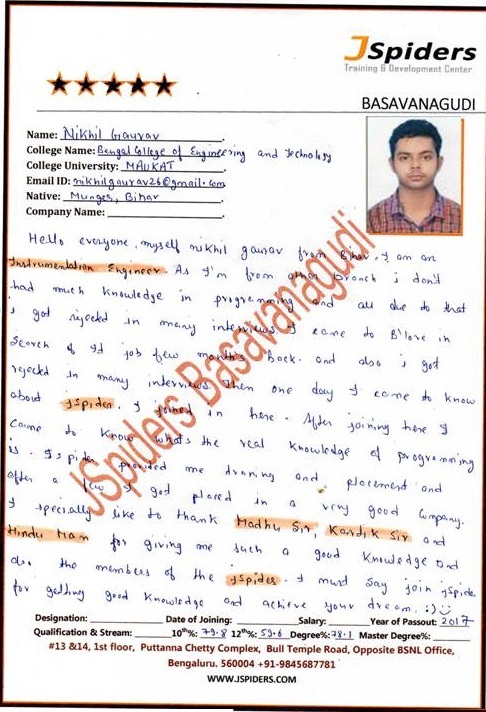 JSpiders
Training & Development Center
BASAVANAGUDI
Name: Nikhil Gaurav
College Name: Bengal College of Engineering and Technology
College University: MAUKAT
Email ID: nikhilgaurav26@gmail.com
Native: Munger, Bihar
Company Name:
Hello everyone, myself nikhil gaurav from Bihar. I am an
Instrumentation Engineer. As I'm from other branch i don't
had much knowledge in programming and all due to that
i got rejected in many interviews. I came to B'lore in
Search of Id job few month's back. and also i got
rejected in many interviews. Then one day I came to know
about JSpider. I joined in here. After joining here I
Came to know what's the real knowledge of programming
is. JSpider provided me training and placement and
after a few I god placed in a very good company.
I specially like to thank Madhu Sir, Kardik Sir and
Hindu Mam for giving me such a good knowledge and
also the members of the JSpider. I must say join jspider
for getting good knowledge and achieve your dream. :)
JSpiders Basavanagudi
Designation: Date of Joining: Salary: Year of Passout: 2017
Qualification & Stream: 10th%: 79.8 12th%: 59.6 Degree%: 78.1 Master Degree%:
#13 &14, 1st floor, Puttanna Chetty Complex, Bull Temple Road, Opposite BSNL Office,
Bengaluru. 560004 +91-9845687781
WWW.JSPIDERS.COM